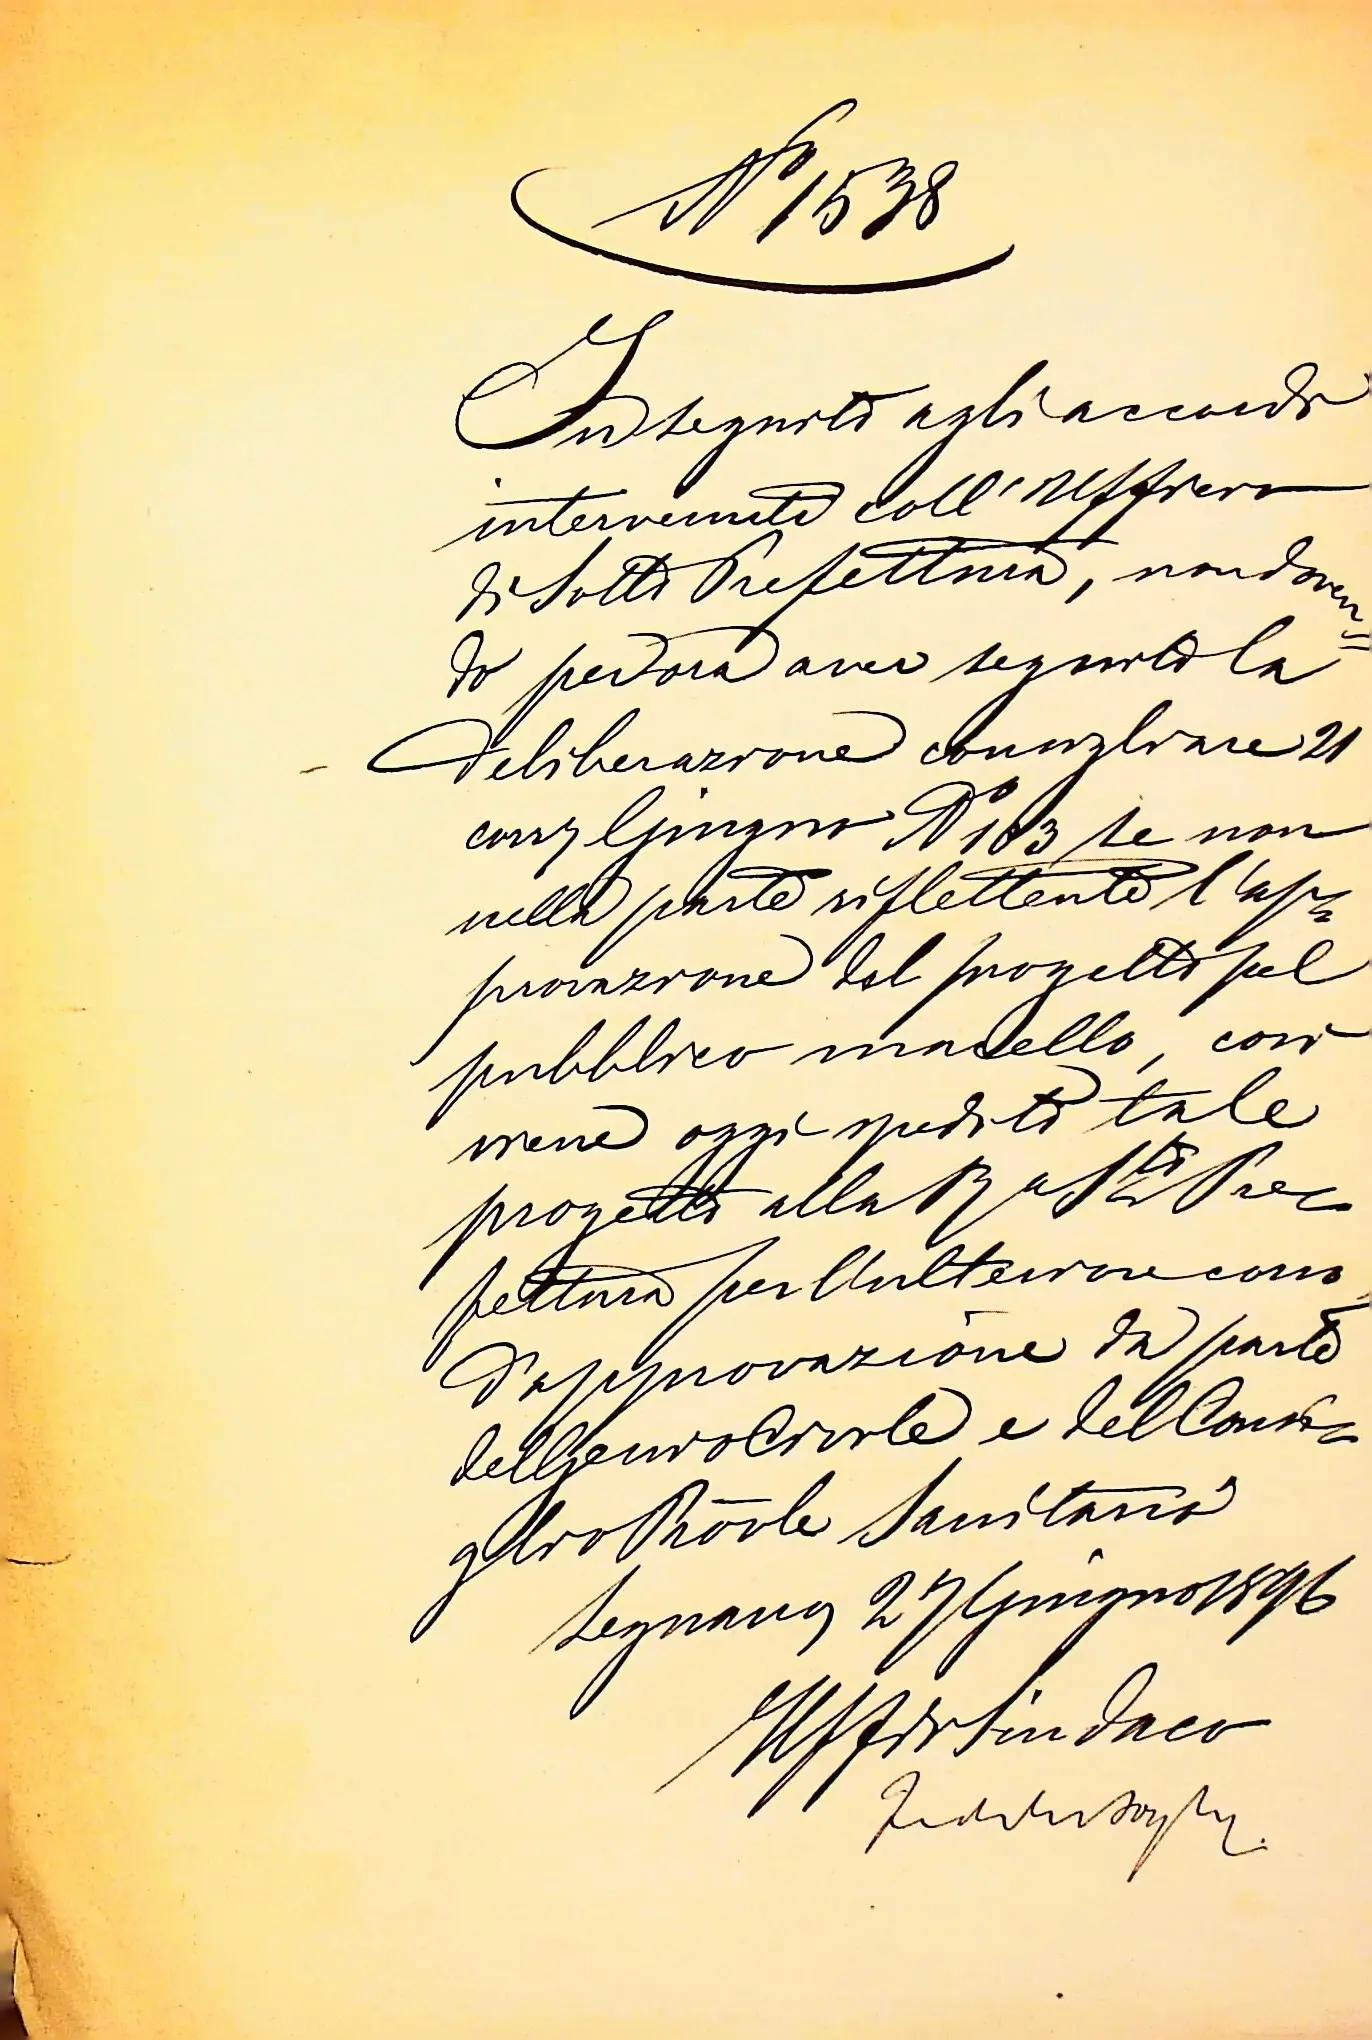 N° 1538
In seguito agli accordi
intervenuti coll'Ufficio
di Sotto Prefettura, non doven=
do per ora aver seguito la
deliberazione consigliare 21
corr Giugno N° 103 se non
nella parte riflettente l'ap=
provazione del progetto pel
pubblico macello, così
viene oggi spedito tale
progetto alla R a S.to Pre=
fettura per l'ulteriore corso
d'approvazione da parte
del Genio Civile e del Consi=
glio Prov.le Sanitario
27 Giugno 1896
Uff di Sindaco